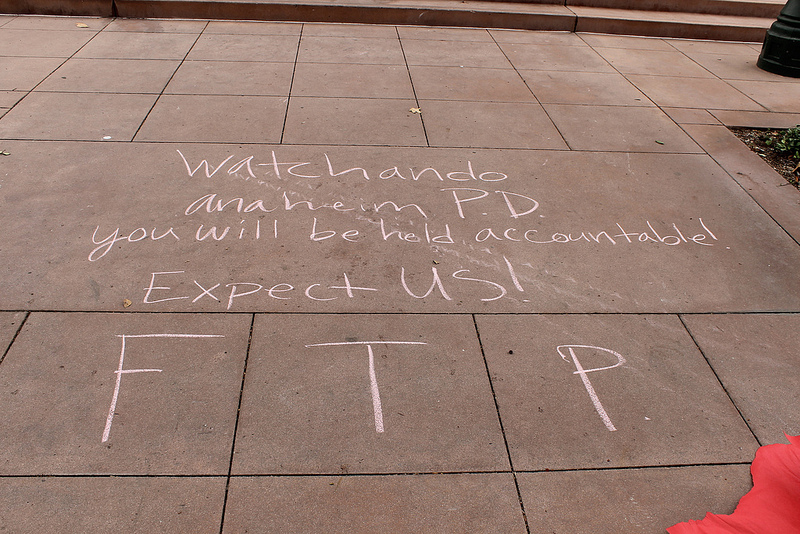 Watchando
anaheim P.D.
you will be held accountable!
Expect US!
F T P